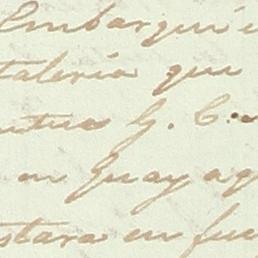 Embarqué
taleria que
G. C.
en Guayaq
stara en fue